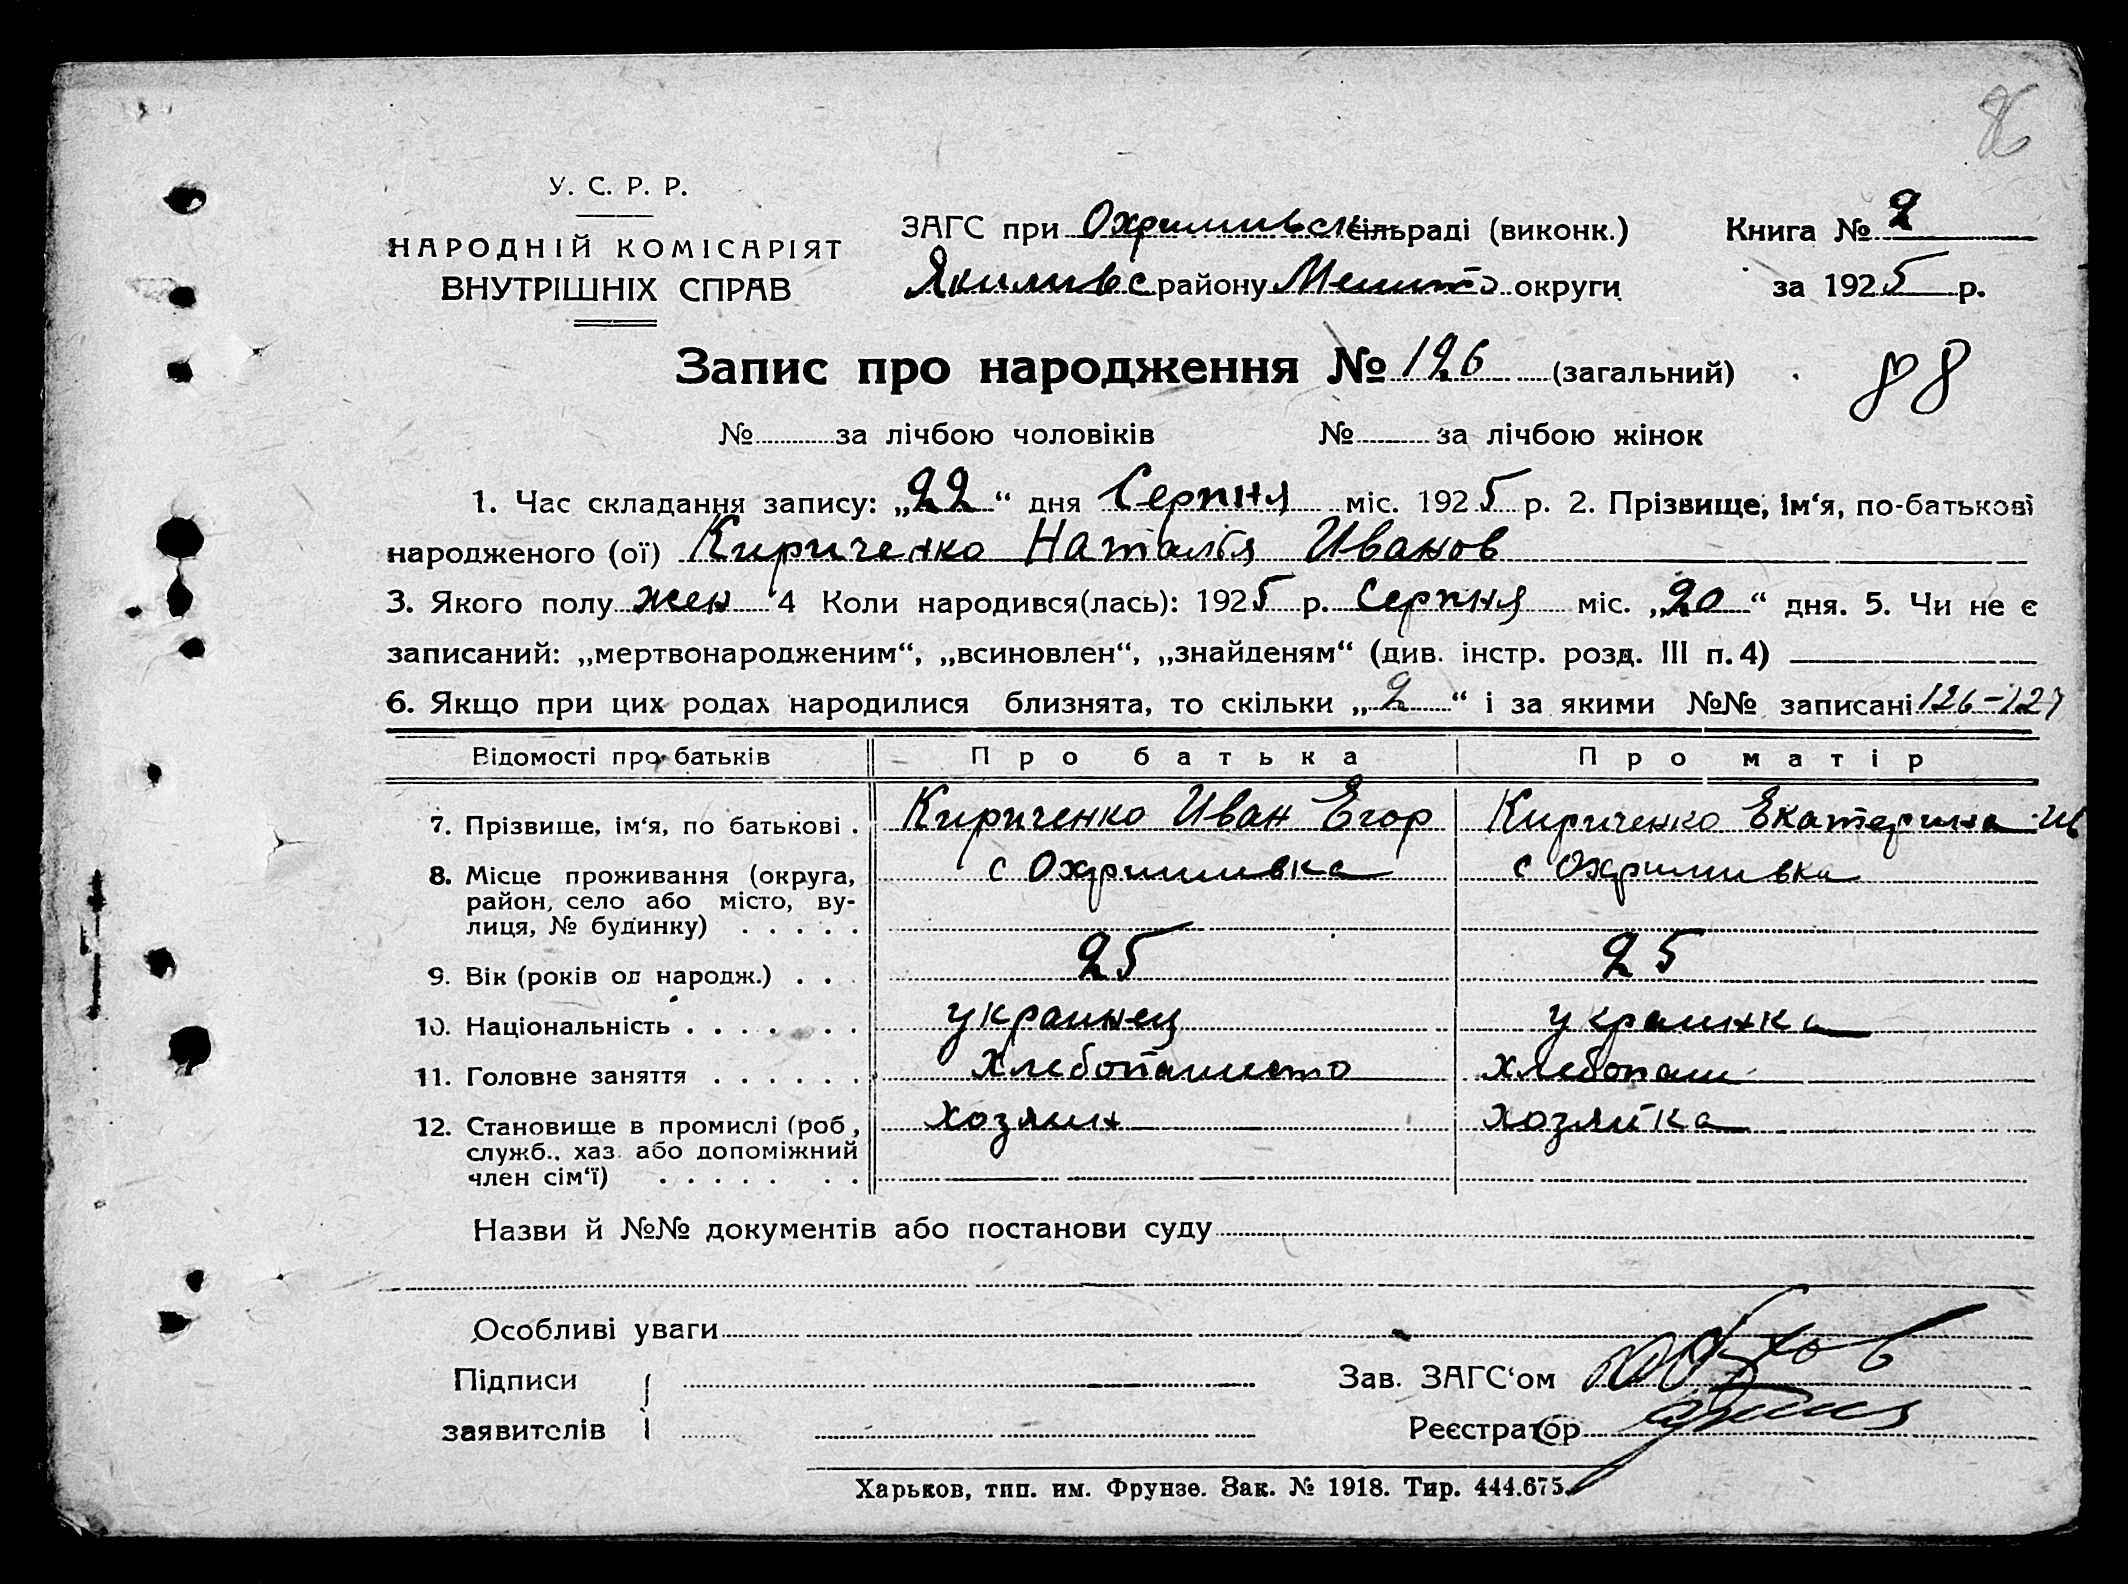 86
У. С. Р. Р.
НАРОДНІЙ КОМІСАРІЯТ
ВНУТРІШНІХ СПРАВ
ЗАГС при Охримивск сільраді (виконк.)
Якимивс району Мелито округи
Книга № 2
за 1925 р.
Запис про народження № 126 (загальний)
88
№ за лічбою чоловіків № за лічбою жінок
1. Час складання запису: „22“ дня Серпня міс. 1925 р. 2. Прізвище, ім‘я, по-батькові
народженого (ої) Кириченко Наталія Иванов
3. Якого полу жен 4 Коли народився(лась): 1925 р. Серпня міс. „20“ дня. 5. Чи не є
записаний: „мертвонародженим“, „всиновлен“, „знайденям“ (див. інстр. розд. III п.4)
6. Якщо при цих родах народилися близнята, то скільки „2“ і за якими №№ записані 126-127
Відомості про батьків Про батька Про матір
7. Прізвище, ім‘я, по батькові . Кириченко Иван Егор Кириченко Екатерина Ив
8. Місце проживання (округа, с Охримивка с Охримивка
район, село або місто, ву-
лиця, № будинку) . . . . .
9. Вік (років од народж.) . . 25 25
10. Національність . . . . . . украинец украинка
11. Головне заняття . . . . . . Хлебопашество хлебопаш
12. Становище в промислі (роб, хозяин хозяйка
служб., хаз. або допоміжний
член сім‘ї) . . . . . . .
Назви й №№ документів або постанови суду
Особливі уваги
Підписи
заявителів
Зав. ЗАГС‘ом
Реєстратор
Харьков, тип. им. Фрунзе. Зак. № 1918. Тир. 444.675.